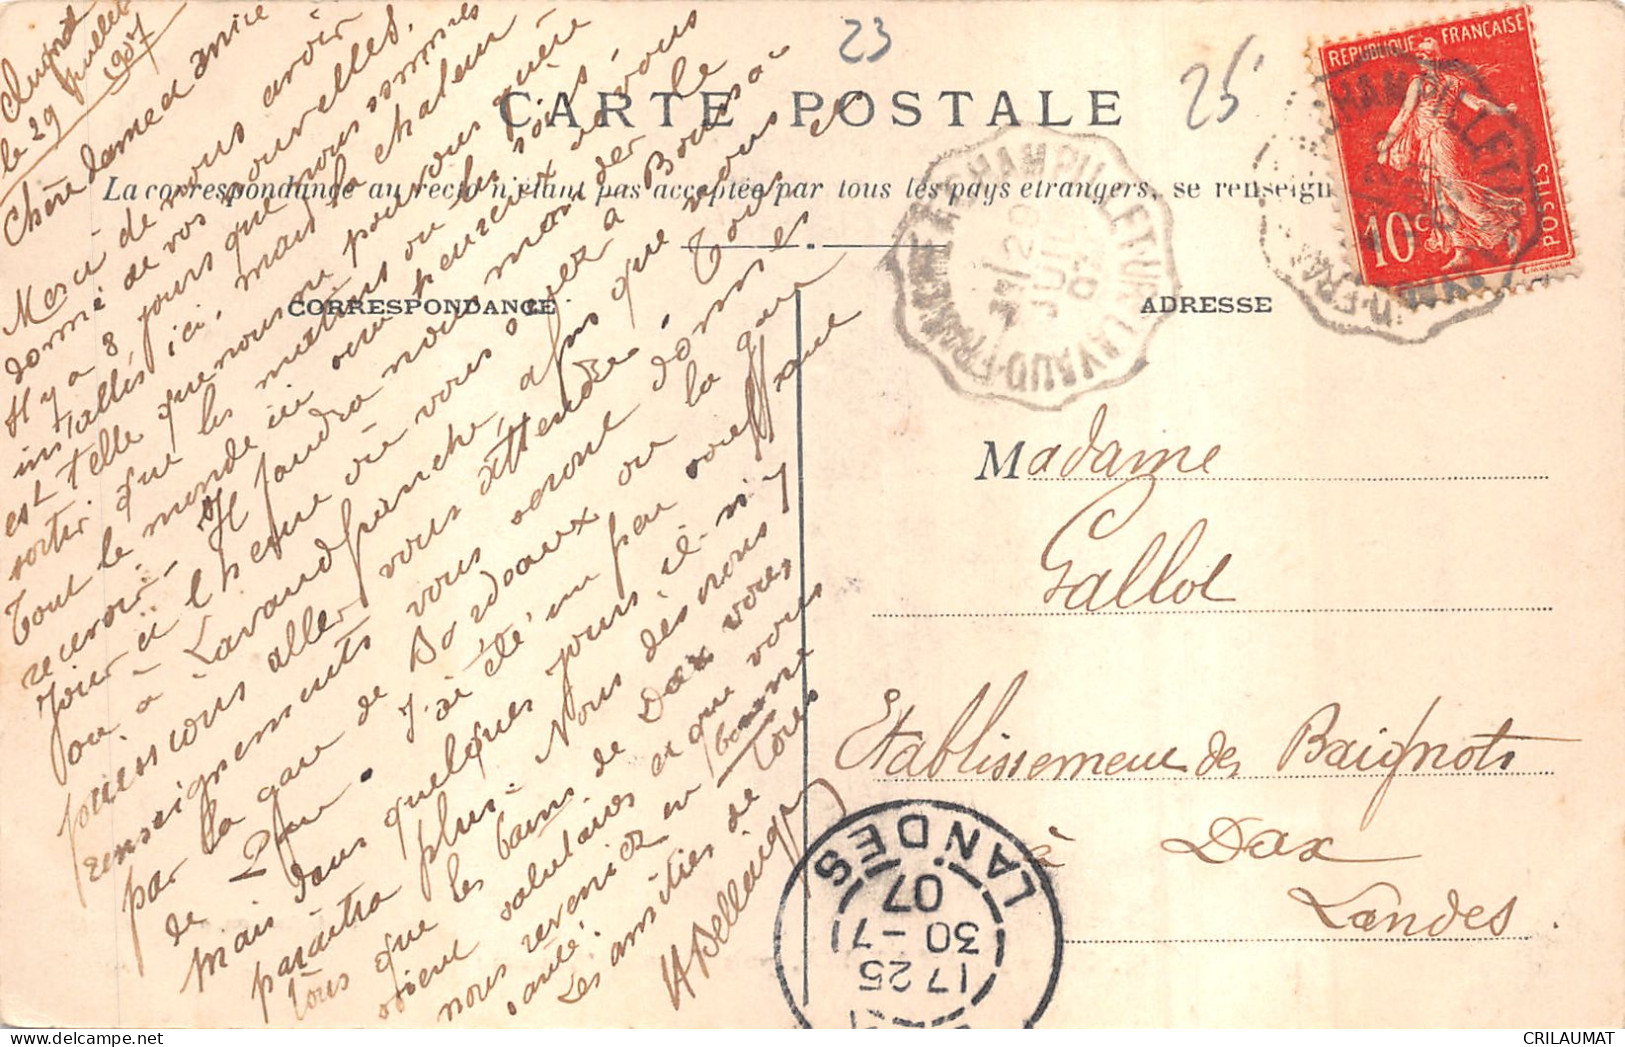 23
25
CARTE POSTALE
La correspondance au recto n'étant pas acceptée par tous les pays étrangers, se renseign
CORRESPONDANCE
ADRESSE
REPUBLIQUE FRANÇAISE
10c
POSTES
CHAMPILLET-UR LAVAUD-FRANCHE
29
JUIL
07
le 29 Juillet
1907
Chère dame et amie
Merci de nous avoir
donné de vos nouvelles.
Il y a 8 jours que nous sommes
installés ici, mais la chaleur
est telle que nous ne pouvons guère
sortir que les matins ou les soirs.
Tout le monde ici sera heureux de vous
recevoir. Il faudra nous mander le
jour et l'heure où vous serez à Boussac
ou à Lavaudfranche, afin que nous
puissions aller vous attendre. Tous
renseignements vous seront donnés
par la gare de Bordeaux ou la gare
de Dax.
J'ai été un peu souffrante
mais dans quelques jours, il n'y
paraîtra plus. Nous désirons
tous que les bains de Dax vous
soient salutaires et que vous
nous reveniez en bonne
santé.
Les amitiés de tous
Madame
Gallot
Etablissement des Baignots
à Dax
Landes
LANDES
17 25
30 - 7
07
CRILAUMAT